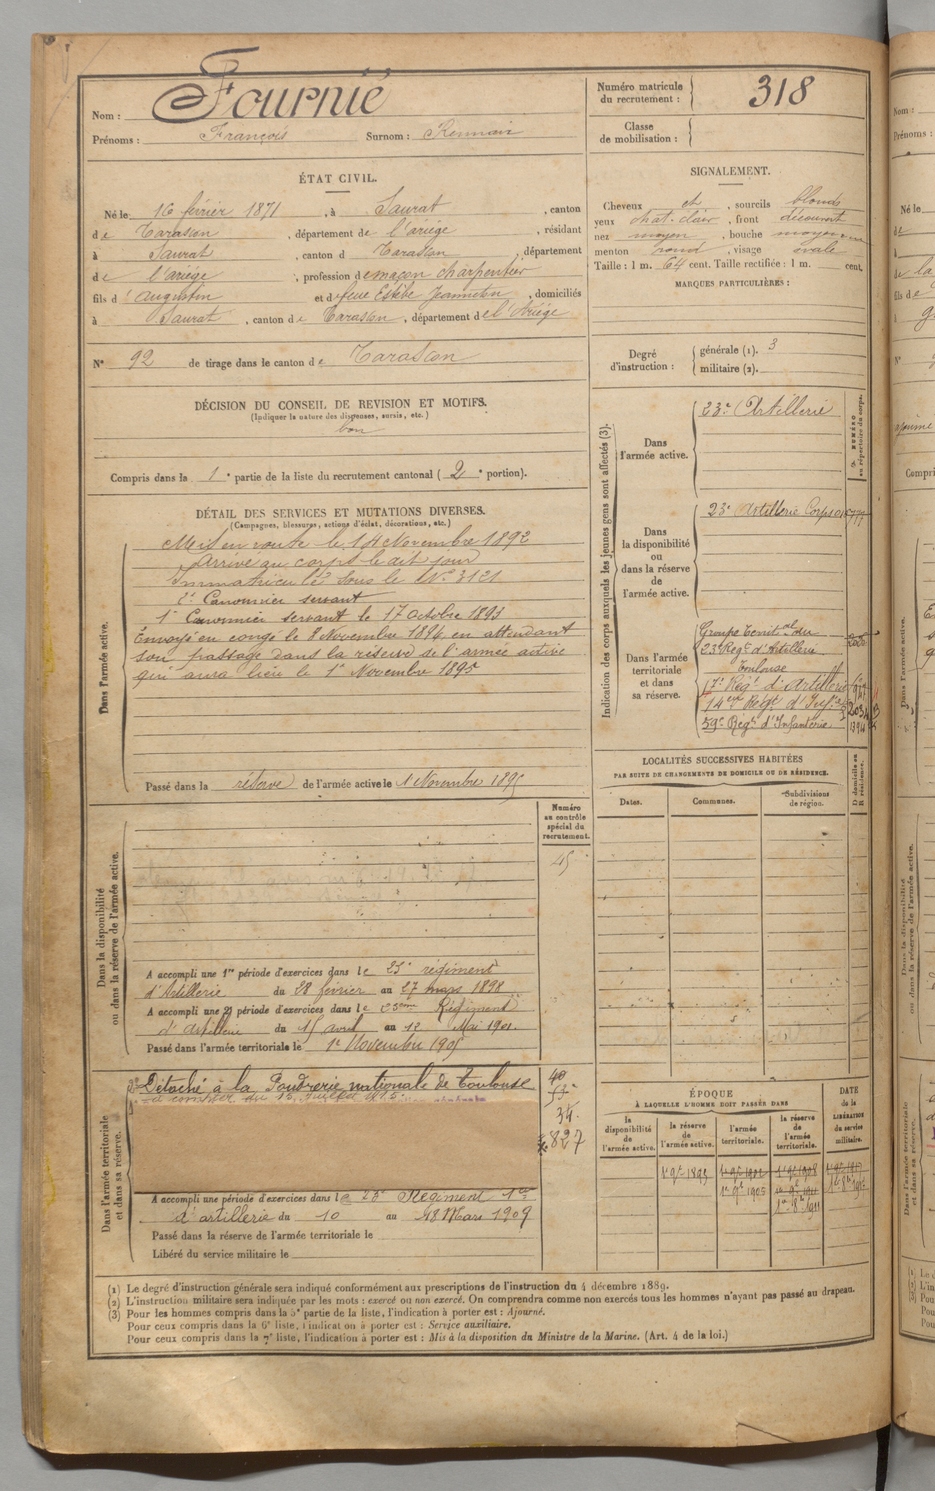 Nom : Fournié
Prénoms : François Surnom :
ÉTAT CIVIL.
Né le 16 février 1871 , à Saurat , canton
de Tarascon , département de l'ariège , résidant
à Saurat , canton d Tarascon , département
de l'ariège , profession de maçon charpentier
fils d'Augustin et de feue Estèbe Jeanneton , domiciliés
à Saurat , canton de Tarascon , département de l'Ariège
N° 92 de tirage dans le canton de Tarascon
DÉCISION DU CONSEIL DE REVISION ET MOTIFS.
(Indiquer la nature des dispenses, sursis, etc.)
bon
Compris dans la 1e partie de la liste du recrutement cantonal (2e portion).
DÉTAIL DES SERVICES ET MUTATIONS DIVERSES.
(Campagnes, blessures, actions d'éclat, décorations, etc.)
Dans l'armée active.
Mis en route le 14 Novembre 1892
Arrivé au corps le dit jour
Immatriculé sous le N° 3121
2e Canonnier servant
1er Canonnier servant le 17 Octobre 1893
Envoyé en congé le 8 Novembre 1894 en attendant
son passage dans la réserve de l'armée active
qui aura lieu le 1er Novembre 1895
Passé dans la réserve de l'armée active le 1 Novembre 1895
Numéro au contrôle spécial du recrutement.
45
Dans la disponibilité ou dans la réserve de l'armée active.
A accompli une 1re période d'exercices dans le 23e régiment
d'Artillerie du 28 février au 27 mars 1898
A accompli une 2e période d'exercices dans le 23ème Régiment
d'Artillerie du 15 avril au 12 Mai 1901.
Passé dans l'armée territoriale le 1er Novembre 1905
Dans l'armée territoriale et dans sa réserve.
Détaché à la Poudrerie nationale de Toulouse
à compter du 15 Juillet 1915.
40
53
34.
827
A accompli une période d'exercices dans le 23e Régiment
d'artillerie du 10 au 18 Mars 1909
Passé dans la réserve de l'armée territoriale le
Libéré du service militaire le
Numéro matricule du recrutement : 318
Classe de mobilisation :
SIGNALEMENT.
Cheveux et , sourcils blonds
yeux chat. clair , front découvert
nez moyen , bouche moyenne
menton rond , visage ovale
Taille : 1 m. 64 cent. Taille rectifiée : 1 m. cent.
MARQUES PARTICULIÈRES :
Degré d'instruction : générale (1). 3
militaire (2).
Indication des corps auxquels les jeunes gens sont affectés (3).
NUMÉRO au répertoire du corps.
Dans l'armée active.
23e Artillerie
Dans la disponibilité ou dans la réserve de l'armée active.
23e Artillerie Corps
Dans l'armée territoriale et dans sa réserve.
Groupe Territal du
23e Régt d'Artillerie
Toulouse
17e Régt d'Artillerie
14em Régt d'Inf.
59e Régt d'Infanterie
LOCALITÉS SUCCESSIVES HABITÉES
PAR SUITE DE CHANGEMENTS DE DOMICILE OU DE RÉSIDENCE.
Dates. Communes. Subdivisions de région. D domicile ou R résidence.
ÉPOQUE
À LAQUELLE L'HOMME DOIT PASSER DANS
DATE de la LIBÉRATION du service militaire.
la disponibilité de l'armée active. la réserve de l'armée active. l'armée territoriale. la réserve de l'armée territoriale.
(1) Le degré d'instruction générale sera indiqué conformément aux prescriptions de l'instruction du 4 décembre 1889.
(2) L'instruction militaire sera indiquée par les mots : exercé ou non exercé. On comprendra comme non exercés tous les hommes n'ayant pas passé au drapeau.
(3) Pour les hommes compris dans la 5e partie de la liste, l'indication à porter est : Ajourné.
Pour ceux compris dans la 6e liste, l'indication à porter est : Service auxiliaire.
Pour ceux compris dans la 7e liste, l'indication à porter est : Mis à la disposition du Ministre de la Marine. (Art. 4 de la loi.)